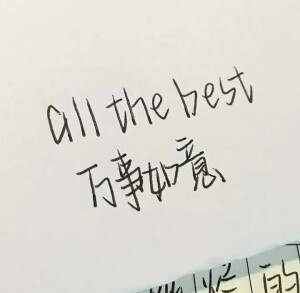 all the best
万事如意
的